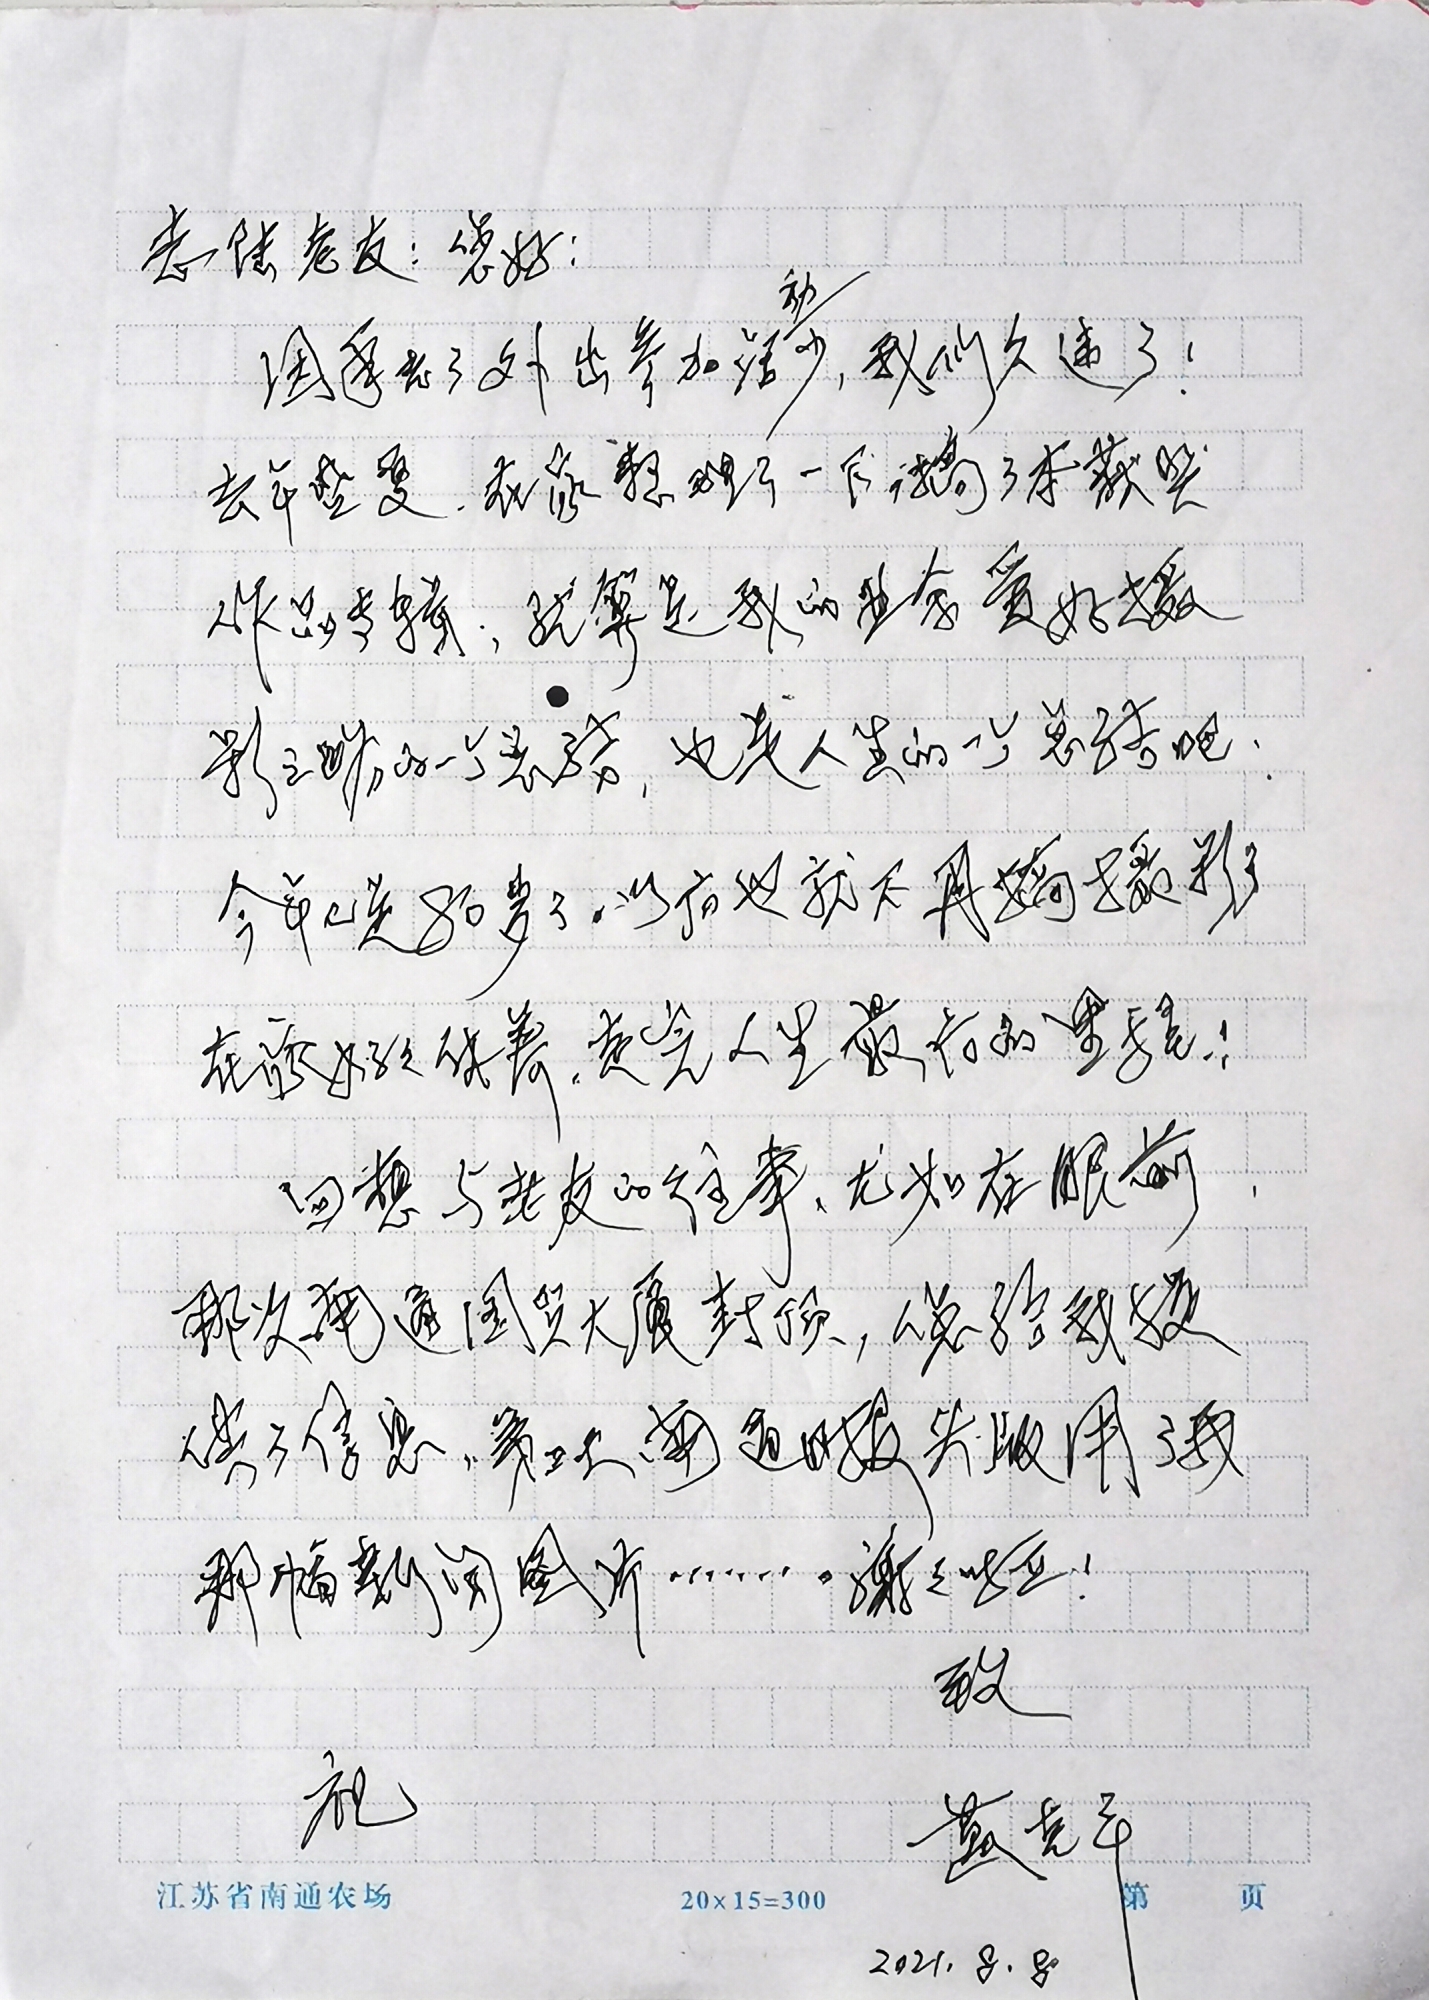 老友：您好：
因年老了外出参加活动少，我们久违了！
去年整夏．在家整理了一下，搞了本获奖
作品专辑，就算是我的生命爱好摄
影之路的一个总结，也是人生的一个总结吧．
今年已是80岁了．以后也就不再搞摄影了
在家好好休养．走完人生最后的里程！
回想与老友的往事、尤如在眼前．
那次南通国贸大厦封顶，您给我提
供了信息，第二天南通日报头版用了我
那幅新闻图片………。谢谢！
致
礼
黄克平
江苏省南通农场 20×15=300 第 页
2021.8.8.